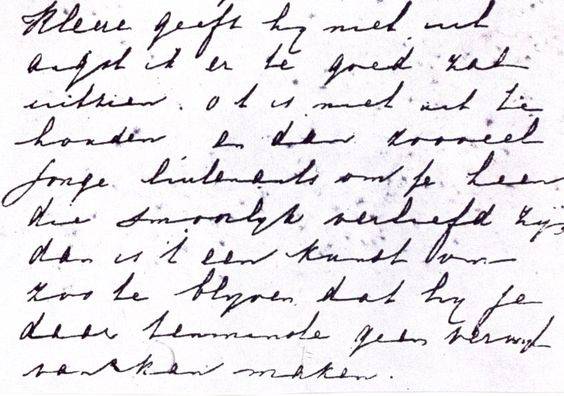 kleeve geeft hy niet uit
angst ik er te goed zal
uitzien. o t is niet uit te
houden en dan zooveel
jonge lieutenants om je heen
die smoorlyk verliefd zyn
dan is 't een kunst om
zoo te blyven dat hy je
daar tenminste geen verwyt
van kan maken.